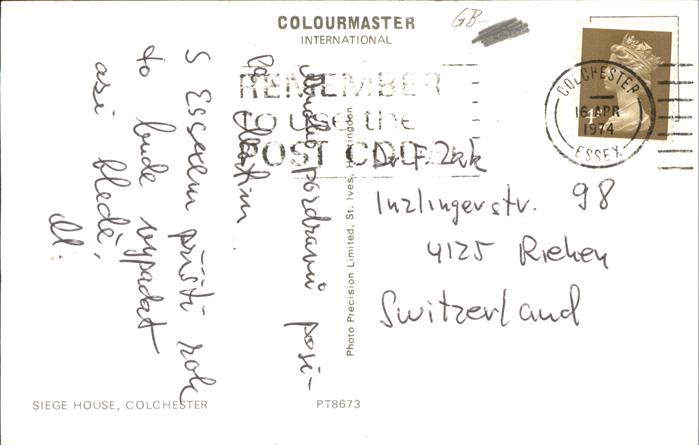 COLOURMASTER
INTERNATIONAL
GB-
COLCHESTER
16 APR
1974
ESSEX
REMEMBER
to use the
POST CODE
Mnoho pozdravů posí-
lá Martin
S Essexem příští rok
to bude vypadat
asi bledě,
M.
Inzlingerstr. 98
4125 Riehen
Switzerland
Photo Precision Limited, St. Ives, Huntingdon
SIEGE HOUSE, COLCHESTER
PT8673